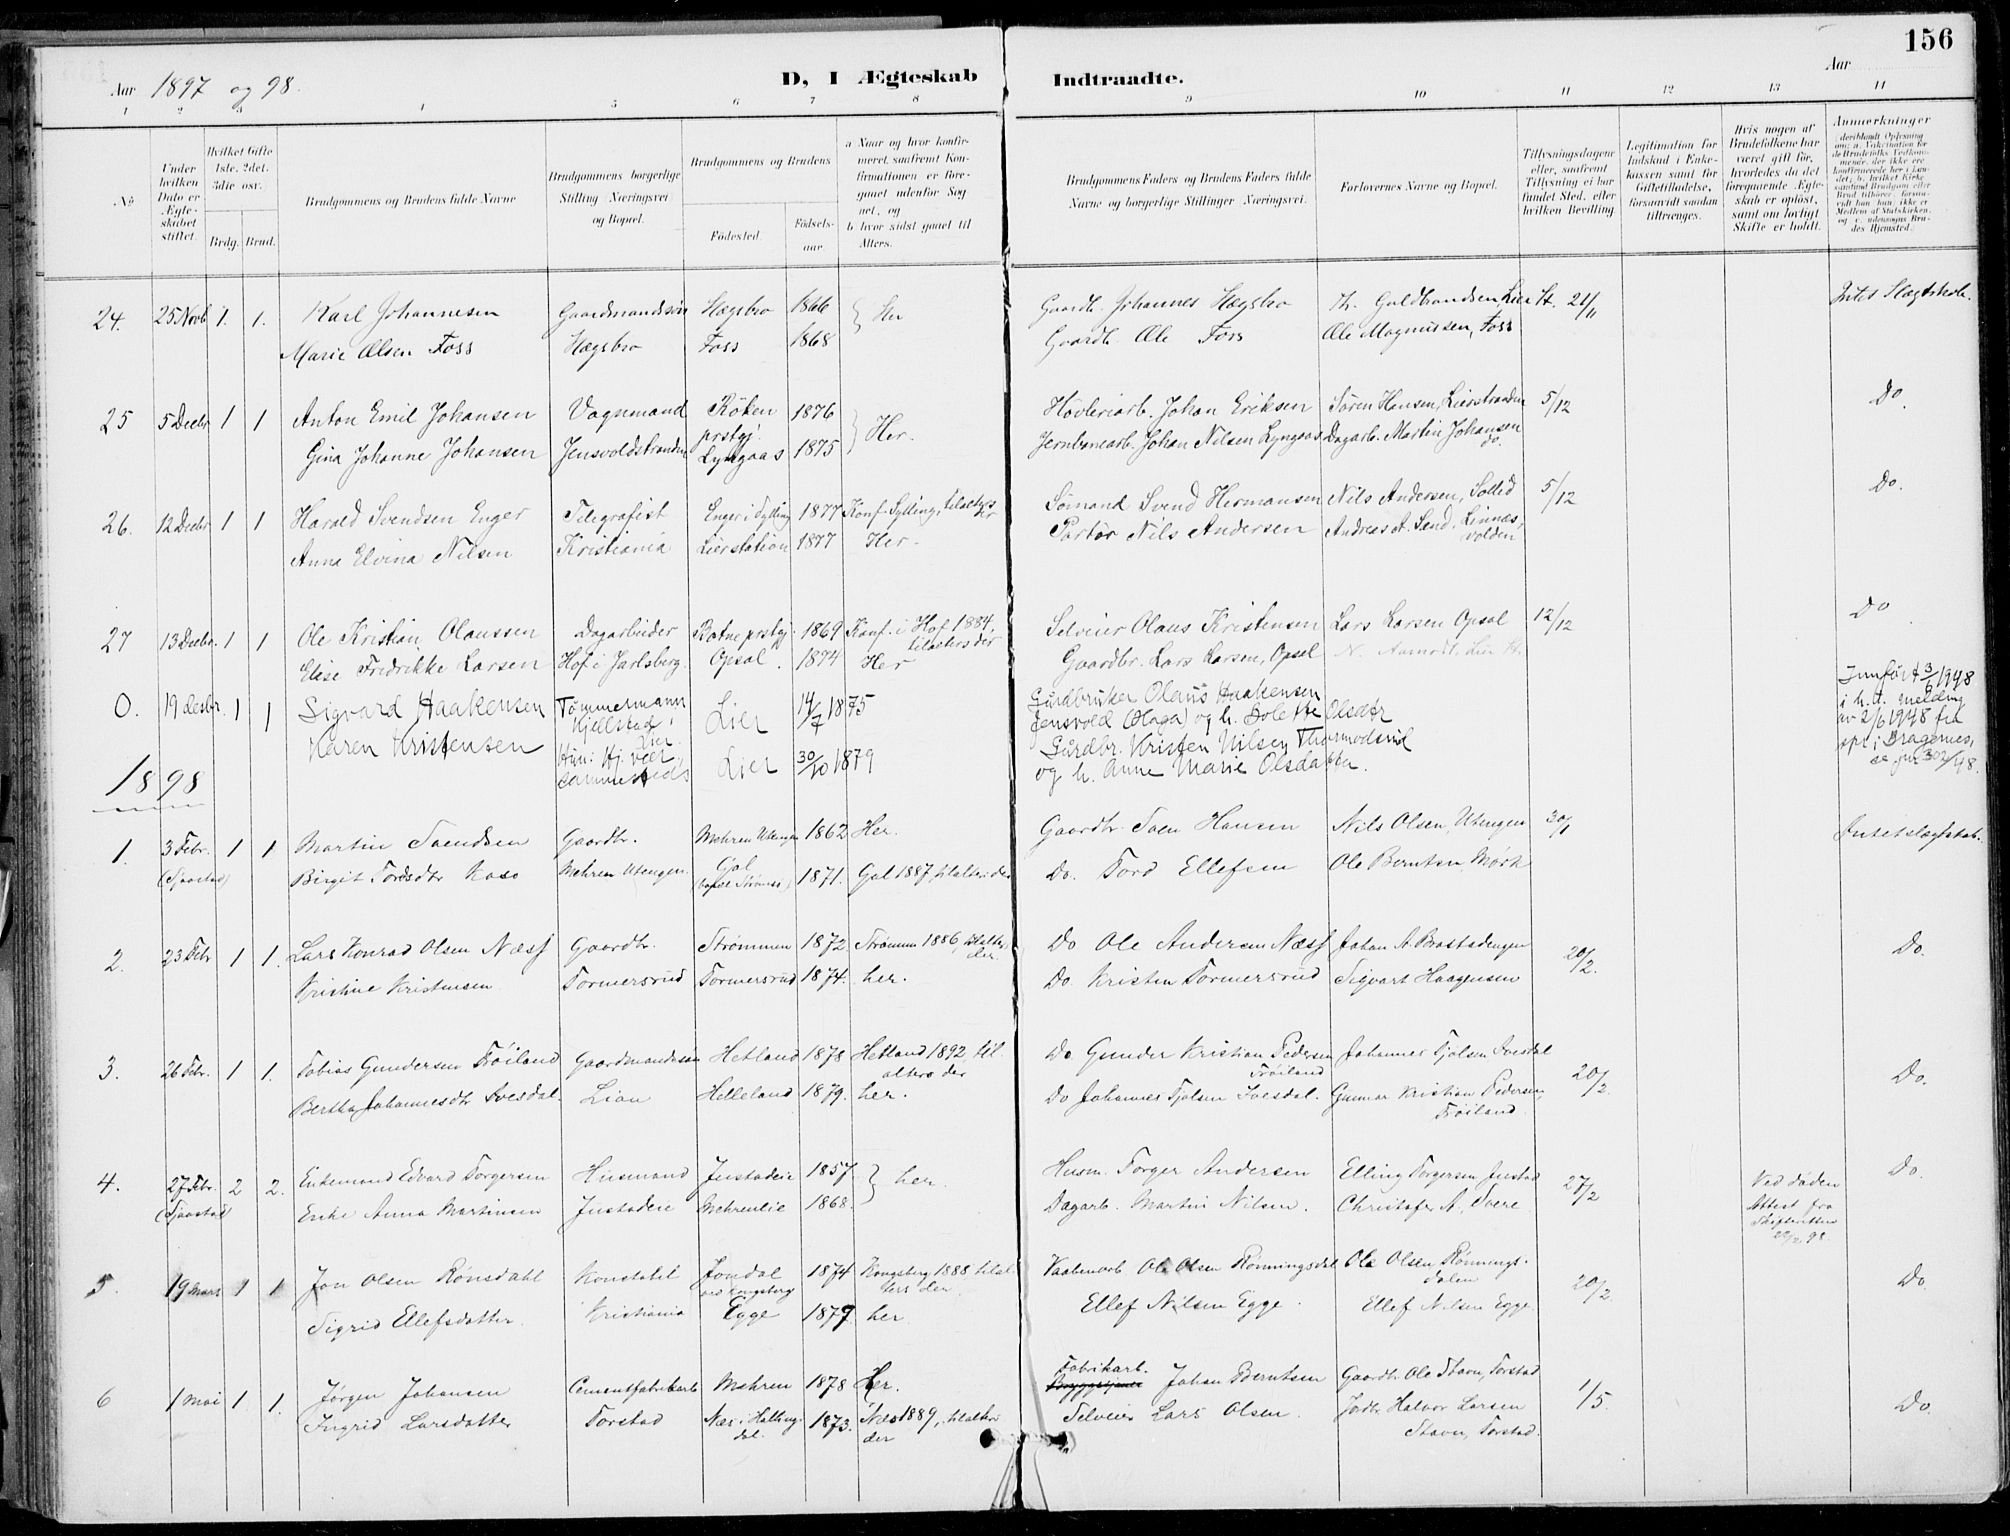 156
Aar 1897 og 98.
D, I Ægteskab Indtraadte.
Aar
1 2 3 4 5 6 7 8 9 10 11 12 13 14
№
Under hvilken Dato er Ægteskabet stiftet.
Hvilket Gifte 1ste, 2det, 3die osv.
Brdg. Brud.
Brudgommens og Brudens fulde Navne
Brudgommens borgerlige Stilling Næringsvei og Bopæl.
Brudgommens og Brudens
Fødested.
Fødselsaar.
a Naar og hvor konfirmeret, saafremt Konfirmationen er foregaaet udenfor Sognet, og
b hvor sidst gaaet til Alters.
Brudgommens Faders og Brudens Faders fulde Navne og borgerlige Stillinger Næringsvei.
Forlovernes Navne og Bopæl.
Tillysningsdagene eller, saafremt Tillysning ei har fundet Sted, efter hvilken Bevilling.
Legitimation for Indskud i Enkekassen samt for Giftetilladelse, forsaavidt saadan tiltrænges.
Hvis nogen af Brudefolkene har været gift før, hvorledes da det foregaaende Ægteskab er opløst, samt om lovligt Skifte er holdt.
Anmærkninger
24. 25 Novb 1. 1. Karl Johannesen Gaardmandssøn Hægsbro 1866 } Her Gaardb. Johannes Hægsbro Th. Guldbrandsen Lier St. 21/11 Intet Slægtskab.
Marie Olsen Foss Hægsbro Foss 1868 Gaardb. Ole Foss Ole Magnussen, Foss
25 5 Decbr 1 1 Anton Emil Johansen Vognmand Röken prstgj. 1876 } Her. Høvleriarb. Johan Eriksen Søren Hansen, Lierstranden 5/12 Do
Gina Johanne Johansen Jensvoldstranden Lyngaas 1875 Jernbanearb. Johan Nilsen Lyngaas Dagarb. Martin Johansen do.
26. 12 Decbr 1 1 Harald Svendsen Enger Telegrafist Enger i Sylling 1877 Konf. Sylling, tilalters der Sømand Svend Hermansen Nils Andersen, Sollid 5/12 Do.
Anna Elvina Nilsen Kristiania Lier station 1877 Her. Portør Nils Andersen Andreas A. Sand, Linnesvolden
27 13 Decbr. 1 1 Ole Kristian Olaussen Dagarbeider Botne prstgj. 1869 Konf. i Hof 1884, tilalters der Selveier Olaus Kristensen Lars Larsen Opsal 12/12 Do
Elise Fredrikke Larsen Hof i Jarlsberg. Opsal. 1874 Her Gaardbr. Lars Larsen, Opsal N. Aamodt, Lier St.
0. 19 desbr. 1 1 Sigvard Haakensen Tømmermann Kjellstad, Lier. Lier 14/7 1875 Gårdbruker Olaus Haakensen Jensvold (Haga) og h. Bolette Olsdtr Innført 3/6 1948 i h.t. melding av 2/6 1948 fra spr. i Bragernes,
Karen Kristensen Hun: Hj.vær. sammesteds Lier 30/10 1879 Gårdbr. Kristen Nilsen Thormodsrud og h. Anne Marie Olsdatter.
1898
1 3 Febr. (Sjaastad) 1 1 Martin Svendsen Gaardbr. Mehren Utengen 1862 Her. Gaardbr. Sven Hansen Nils Olsen, Utengen 30/1 Intet slægtskab.
Birgit Tordsdtr Kaso Mehren Utengen. Gol 1871. Gol 1887, tilalters der Do. Tord Ellefsen Ole Berntsen Mørk
2. 23 Febr 1 1. Lars Konrad Olsen Næss Gaardbr. Strømmen 1872 Strømm 1886, tilalters der. Do Ole Andersen Næss Johan A. Brastadengen 20/2. Do.
Kristine Kristensen Tormersrud Tormersrud 1874. her. Do. Kristen Tormersrud Sigvart Haagensen
3. 26 Febr. 1 1. Tobias Gundersen Frøiland Gaardmandssøn Hetland 1878 Hetland 1892, tilalters der Do Gunder Kristian Pedersen Frøiland Johannes Tjølsen Ivesdal 20/2 Do.
Bertha Johannesdtr Ivesdal. Lian Helleland 1879. her. Do Johannes Tjølsen Ivesdal. Gunnar Kristian Pedersen, Frøiland
4. 27 Febr. (Sjaastad) 2 2. Enkemand Edvard Torgersen Husmand Justadeie 1857. } her. Husm. Torger Andersen Elling Torgersen, Justad 27/2 Ved døden Attest fra Skifteretten 22/2 98 Do.
Enke Anna Martinsen Justadeie Mehreneie 1868. Dagarb. Martin Nilsen. Christofer A. Tvere
5. 19 Mars 1 1 Jon Olsen Rønsdahl Konstabel Jondal ved Kongsberg 1874 Kongsberg 1888 tilalters der. Vaabenarb. Ole Olsen Rønningsdal Ole Olsen Rønningsdalen 20/2 Do
Sigrid Ellefsdatter. Kristiania Egge 1879 her. Ellef Nilsen Egge. Ellef Nilsen Egge
6 1 Mai 1 1. Jørgen Johansen Cementfabrikarb Mehren 1878 Her. Fabrikarb. Johan Berntsen Gaardbr. Ole Stavn, Torstad 1/5. Do.
Ingrid Larsdatter Torstad Næs i Hallingdal. 1873. Næs 1889, tilalters der Selveier Lars Olsen. Jordbr. Halvor Larsen Stavn, Torstad.